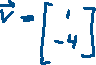 \vec{v} = \begin{bmatrix} 1 \\ -4 \end{bmatrix}